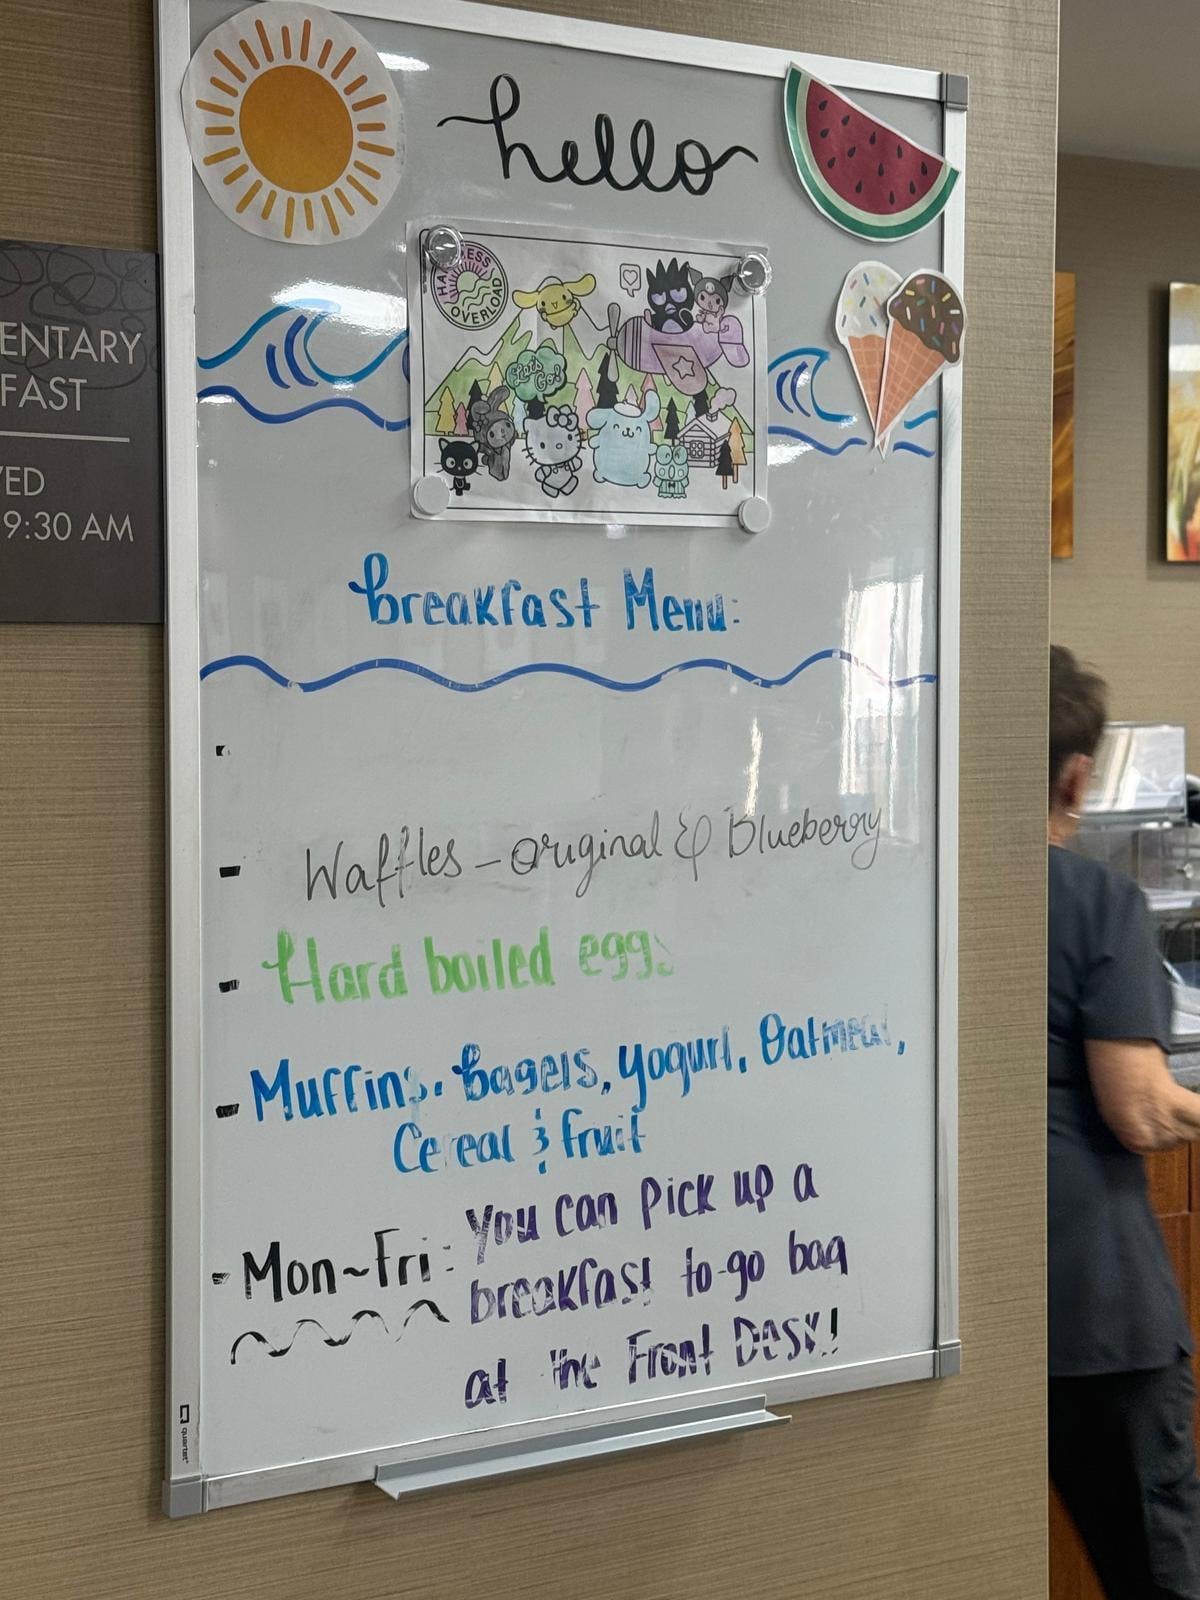 hello
HAPPINESS
OVERLOAD
Let's
Go!
ENTARY
FAST
VED
9:30 AM
Breakfast Menu:
-
- Waffles - original & Blueberry
- Hard boiled eggs
- Muffins, Bagels, yogurt, Oatmeal,
Cereal & fruit
- Mon~Fri: You can pick up a
breakfast to-go bag
at the Front Desk!
quartet